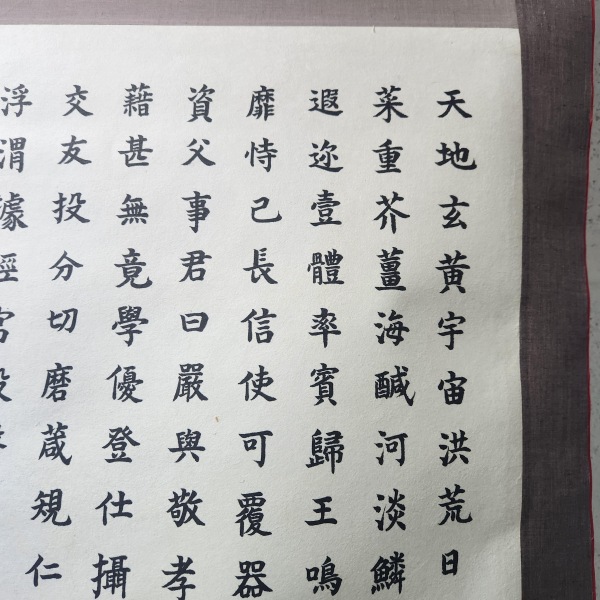 天地玄黃宇宙洪荒日
菜重芥薑海鹹河淡鱗
遐迩壹體率賓歸王鳴
靡恃己長信使可覆器
資父事君曰嚴與敬孝
藉甚無竟學優登仕攝
交友投分切磨葴規仁
浮渭據